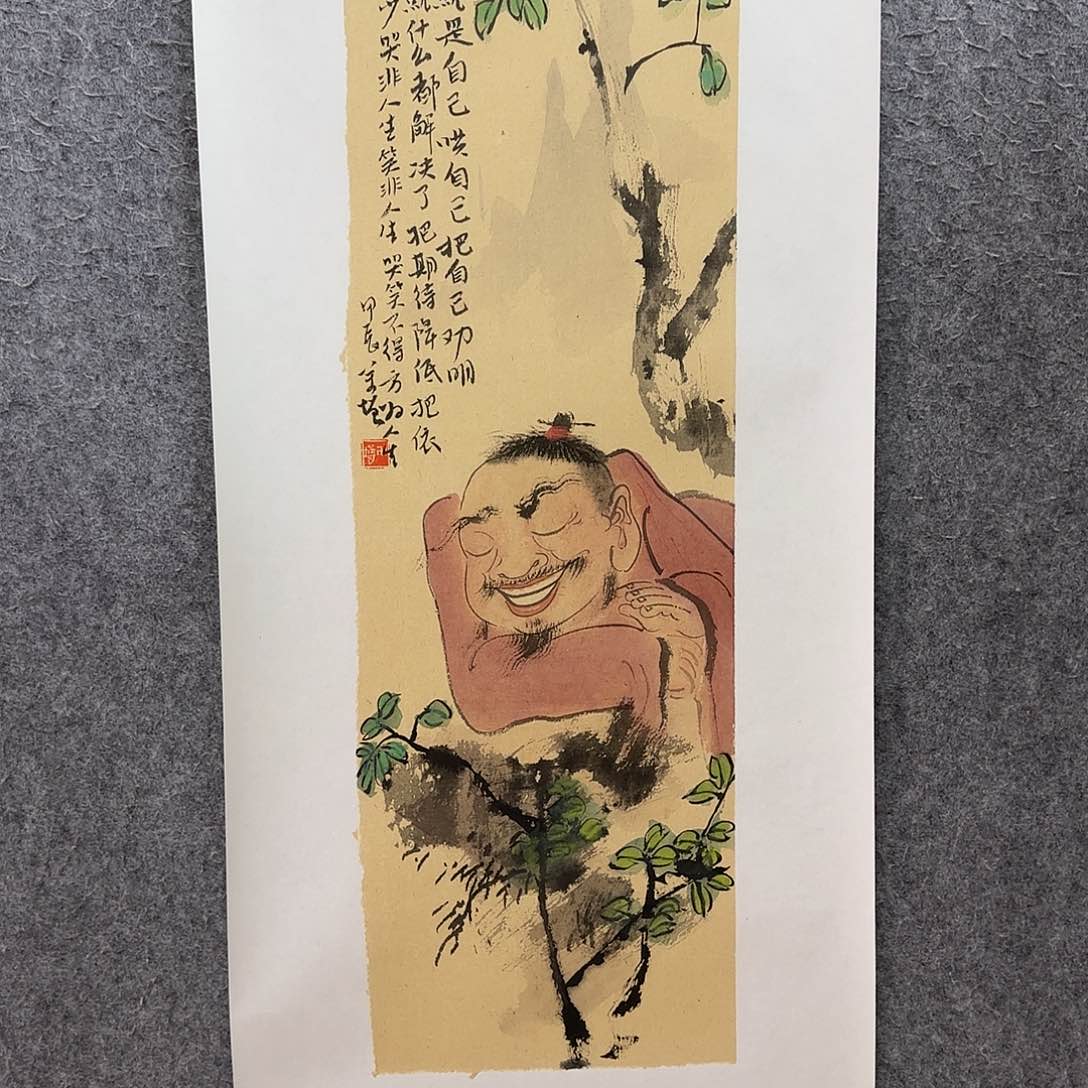 是自己哄自己把自己劝明
什么都解决了把期待降低把依
哭非人生笑非人生哭笑不得方为人生
甲辰